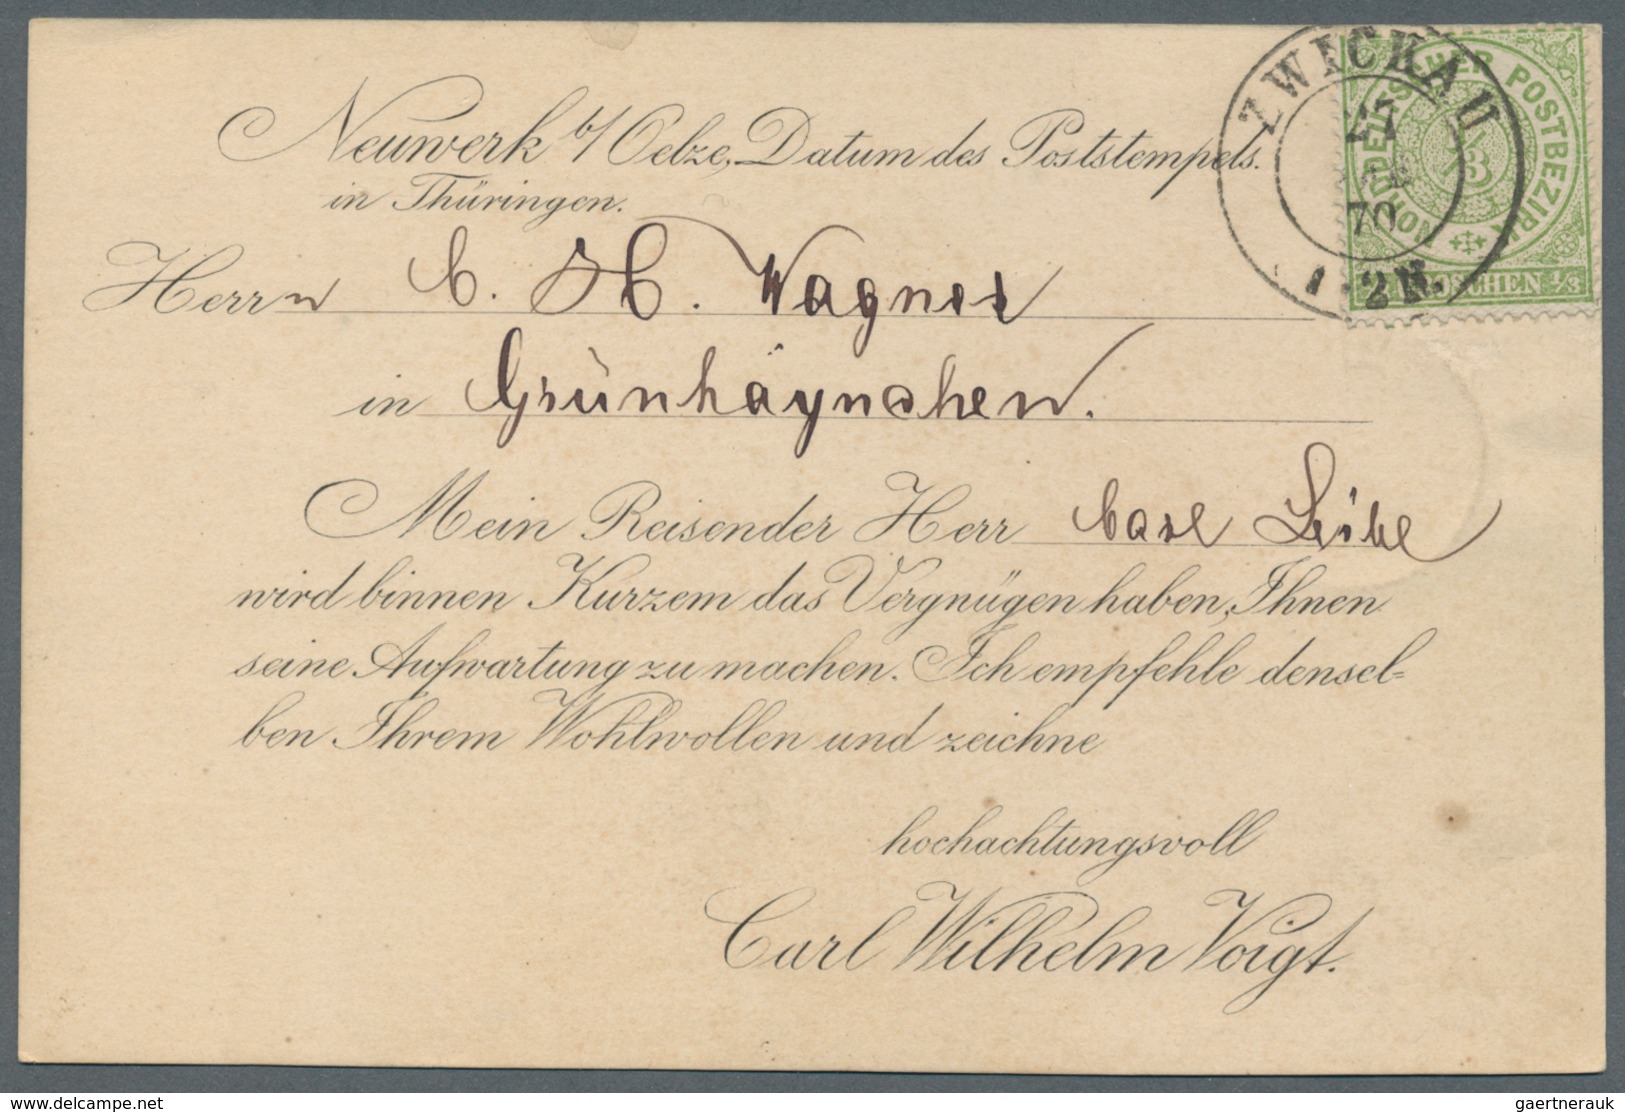 Neuwerk b/Oelze, Datum des Poststempels.
in Thüringen.
Herrn C. H. Wagner
in Grünhäynchen.
Mein Reisender Herr Carl Leibe
wird binnen Kurzem das Vergnügen haben, Ihnen
seine Aufwartung zu machen. Ich empfehle densel-
ben Ihrem Wohlwollen und zeichne
hochachtungsvoll
Carl Wilhelm Voigt.
ZWICKAU
27
70
1-2 N.
NORDDEUTSCHER POSTBEZIRK
1/3
GROSCHEN 1/3
www.delcampe.net
gaertnerauk